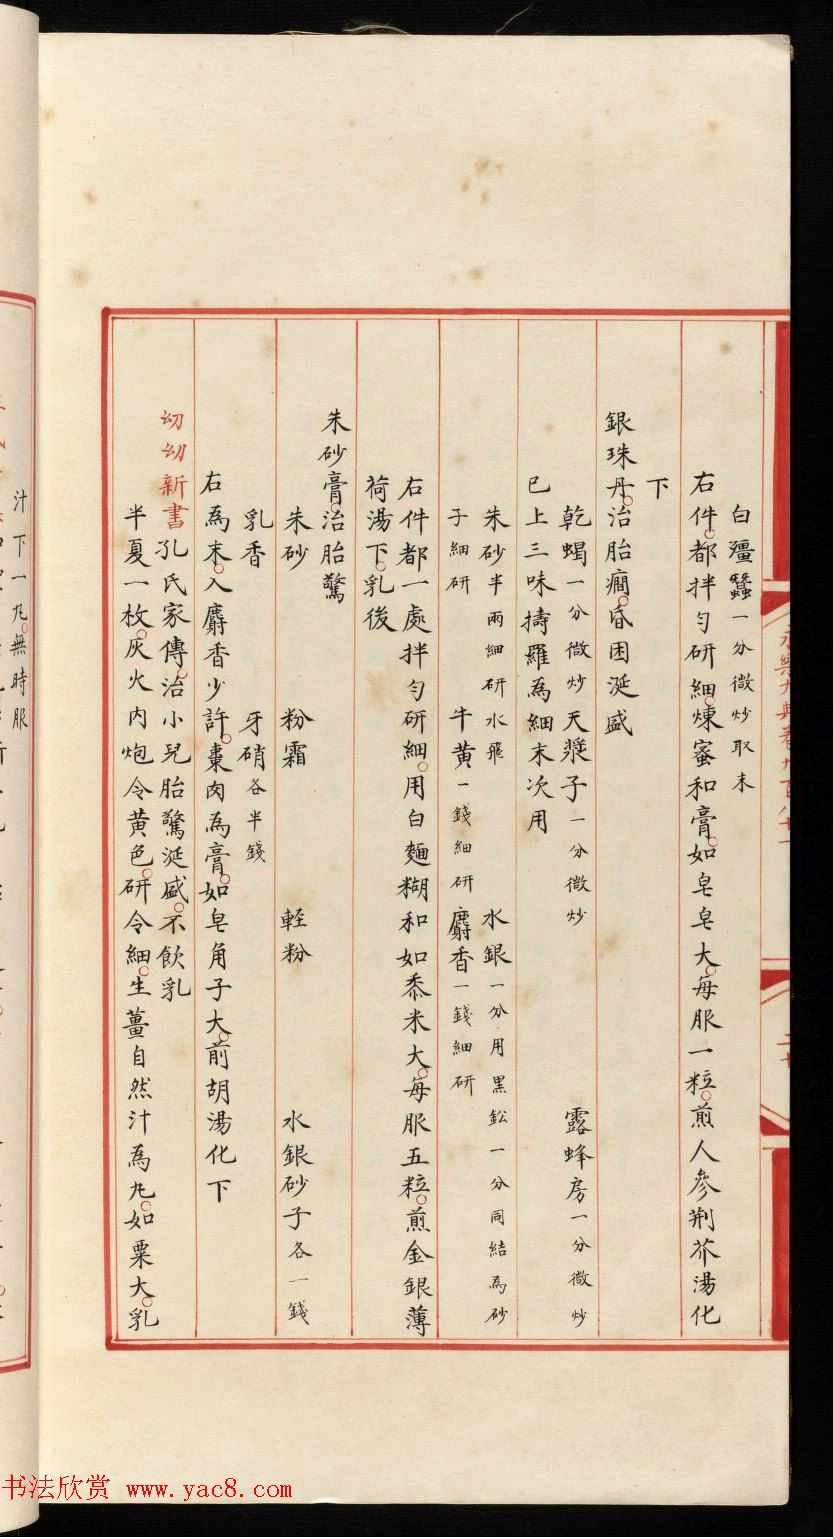 白殭蠶一分微炒取末
右件都拌勻研細煉蜜和膏如皂皂大每服一粒煎人參荆芥湯化
下
銀珠丹治胎癎昏困涎盛
乾蝎一分微炒天漿子一分微炒 露蜂房一分微炒
已上三味擣羅為細末次用
朱砂半兩細研水飛 水銀一分用黑鈆一分同結為砂
子細研 牛黄一錢細研 麝香一錢細研
右件都一處拌勻研細用白麵糊和如黍米大每服五粒煎金銀薄
荷湯下乳後
朱砂膏治胎驚
朱砂 粉霜 輕粉 水銀砂子各一錢
乳香 牙硝各半錢
右為末入麝香少許棗肉為膏如皂角子大前胡湯化下
幼幼新書孔氏家傳治小兒胎驚涎盛不飲乳
半夏一枚灰火内炮令黄色研令細生薑自然汁為丸如粟大乳
汁下一丸無時服
永樂大典卷九百八十一
二十
书法欣赏 www.yac8.com